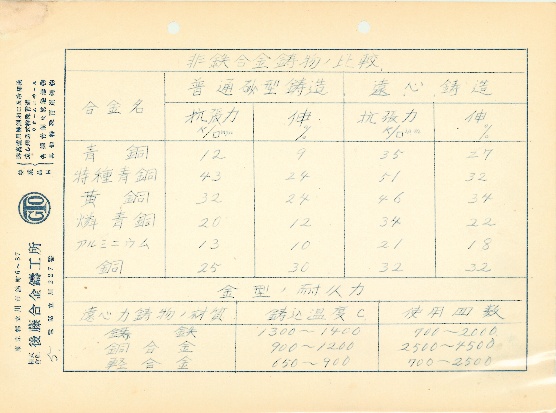 非鉄合金鋳物ノ比較
合金名 普通砂型鋳造 遠心鋳造
抗張力 伸 % 抗張力 伸 %
青銅 12 9 35 27
特種青銅 43 24 51 32
黄銅 32 24 46 34
燐青銅 20 12 34 22
アルミニウム 13 10 21 18
銅 25 30 32 32
金型ノ耐久力
遠心力鋳物ノ材質 鋳込温度C 使用回数
鋳鉄 1300～1400 900～2000
銅合金 900～1200 2500～4500
軽合金 650～900 900～2500
GTO
後藤合金鑄工所